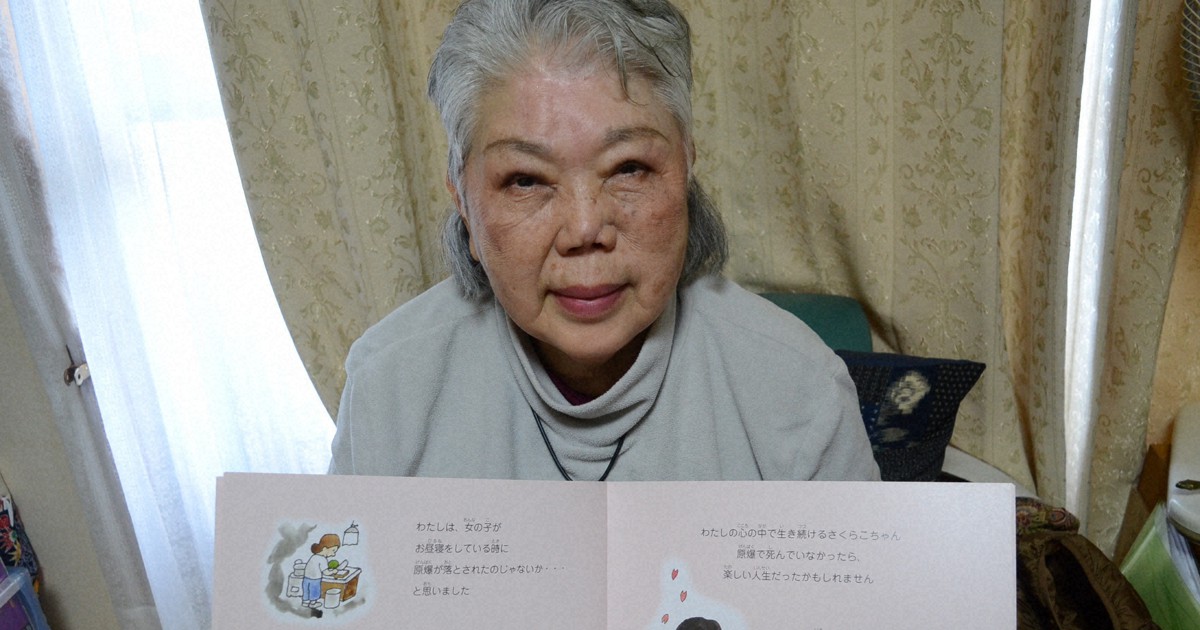 わたしは、女の子が
お昼寝をしている時に
原爆が落とされたのじゃないか・・・
と思いました
わたしの心の中で生き続けるさくらこちゃん
原爆で死んでいなかったら、
楽しい人生だったかもしれません